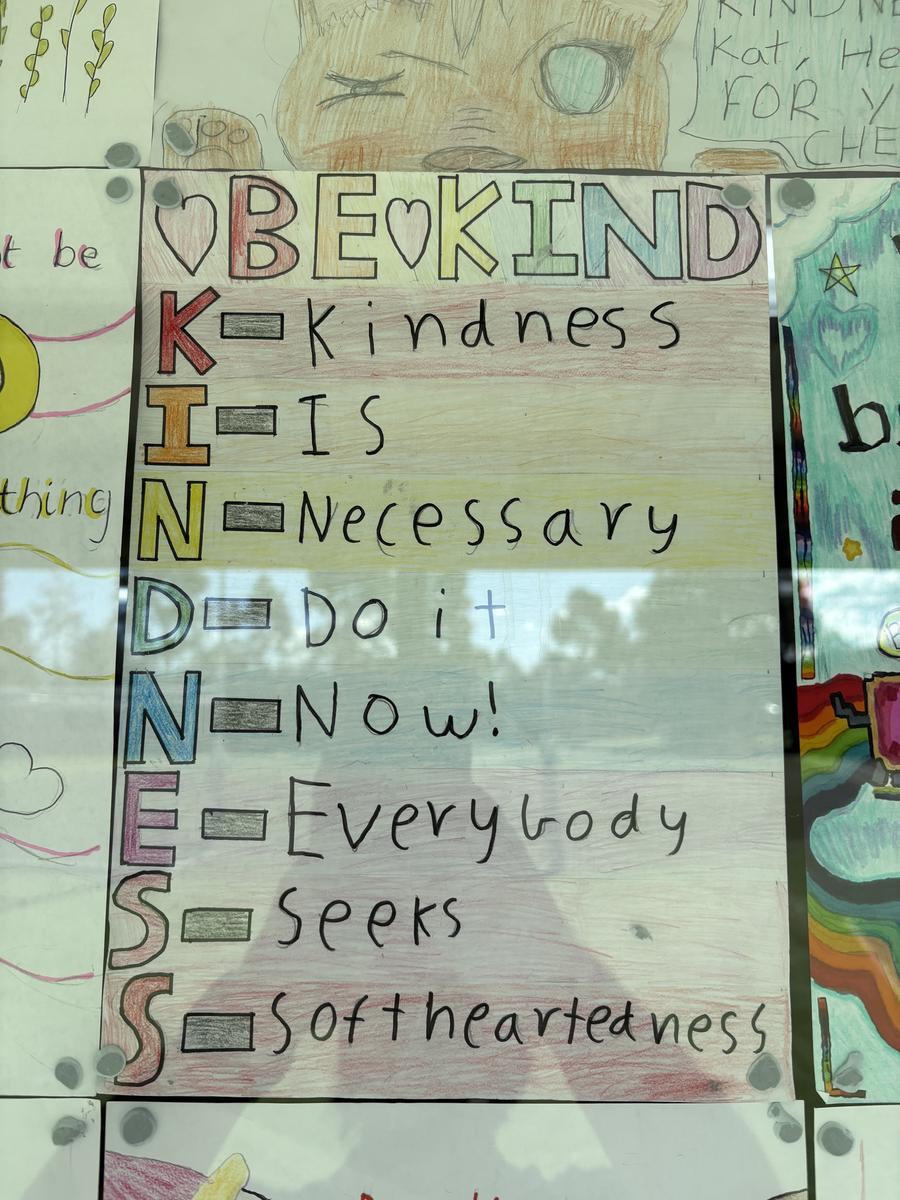 KIND
Kat, He
FOR Y
CHE
t be
thing
♡BE♡KIND
K - Kindness
I - IS
N - Necessary
D - Do it
N - Now!
E - Everybody
S - Seeks
S - Softheartedness